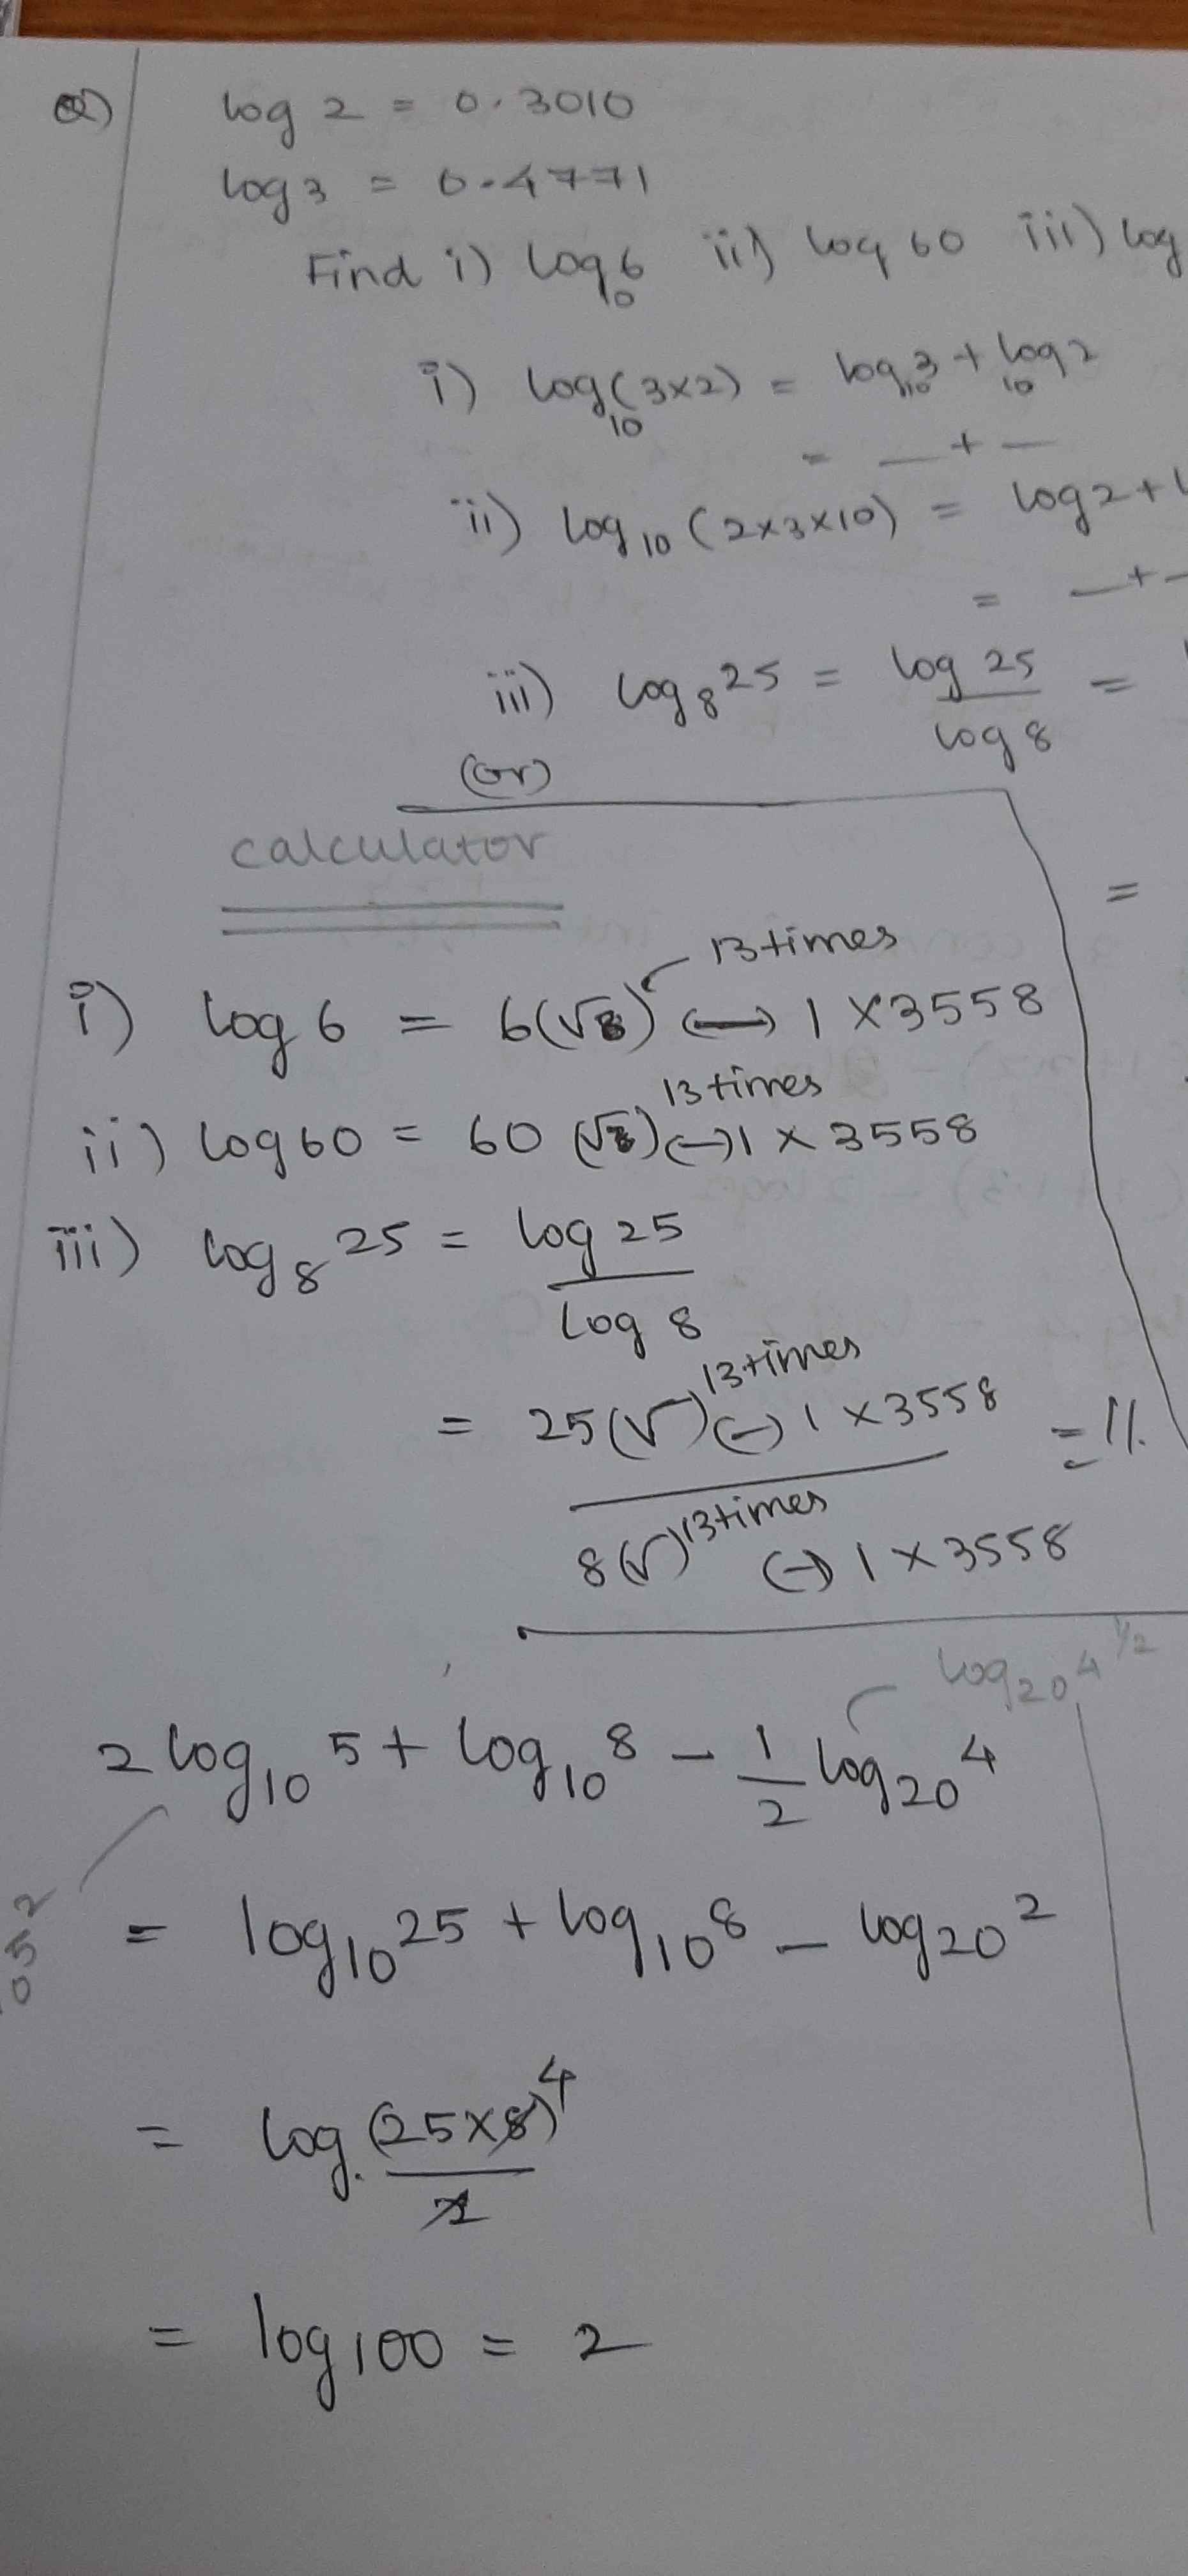 Q) log 2 = 0.3010
log 3 = 0.4771
Find i) log₁₀ 6 ii) log 60 iii) log
i) log₁₀ (3×2) = log₁₀ 3 + log₁₀ 2
= — + —
ii) log₁₀ (2×3×10) = log 2 +
= — + —
iii) log₈ 25 = log 25 / log 8 =
(or)
calculator
=
i) log 6 = 6(√)¹³ ᵗⁱᵐᵉˢ (–) 1 × 3558
ii) log 60 = 60 (√)¹³ ᵗⁱᵐᵉˢ (–) 1 × 3558
iii) log₈ 25 = log 25 / log 8
= 25(√)¹³ ᵗⁱᵐᵉˢ (–) 1 × 3558 / 8(√)¹³ ᵗⁱᵐᵉˢ (–) 1 × 3558 = //.
log₂₀ 4^1/2
2 log₁₀ 5 + log₁₀ 8 – 1/2 log₂₀ 4
05²
= log₁₀ 25 + log₁₀ 8 – log₂₀ 2
= log (25×8)⁴ / 2
= log 100 = 2